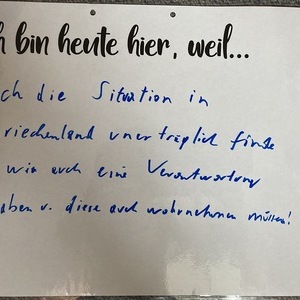 h bin heute hier, weil...
ch die Situation in
riechenland unerträglich finde
wir auch eine Verantwortung
aben u. diese auch wahrnehmen müssen!